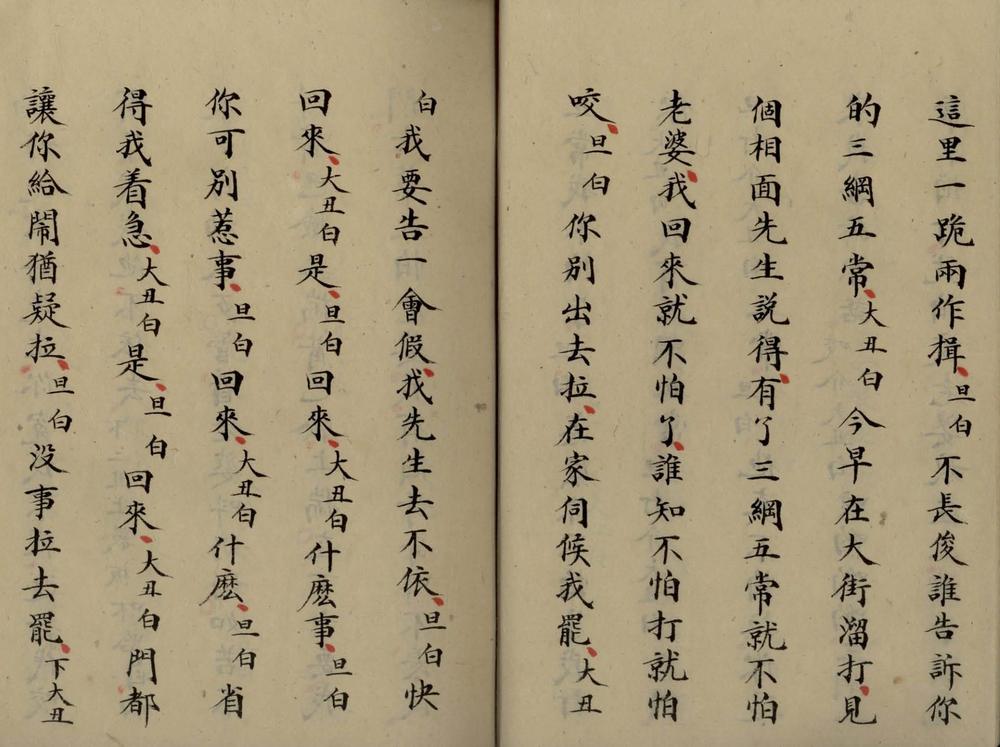 這里一跪兩作揖、旦白不長俊誰告訴你
的三綱五常、大丑白今早在大街溜打、見
個相面先生説得、有了三綱五常就不怕
老婆、我回來就不怕了、誰知不怕打就怕
咬、旦白你别出去拉、在家伺候我罷、大丑
白我要告一會假、我先生去不依、旦白快
回來、大丑白是、旦白回來、大丑白什麽事、旦白
你可别惹事、旦白回來、大丑白什麽、旦白省
得我着急、大丑白是、旦白回來、大丑白門都
讓你給鬧猶疑拉、旦白没事拉去罷、下大丑